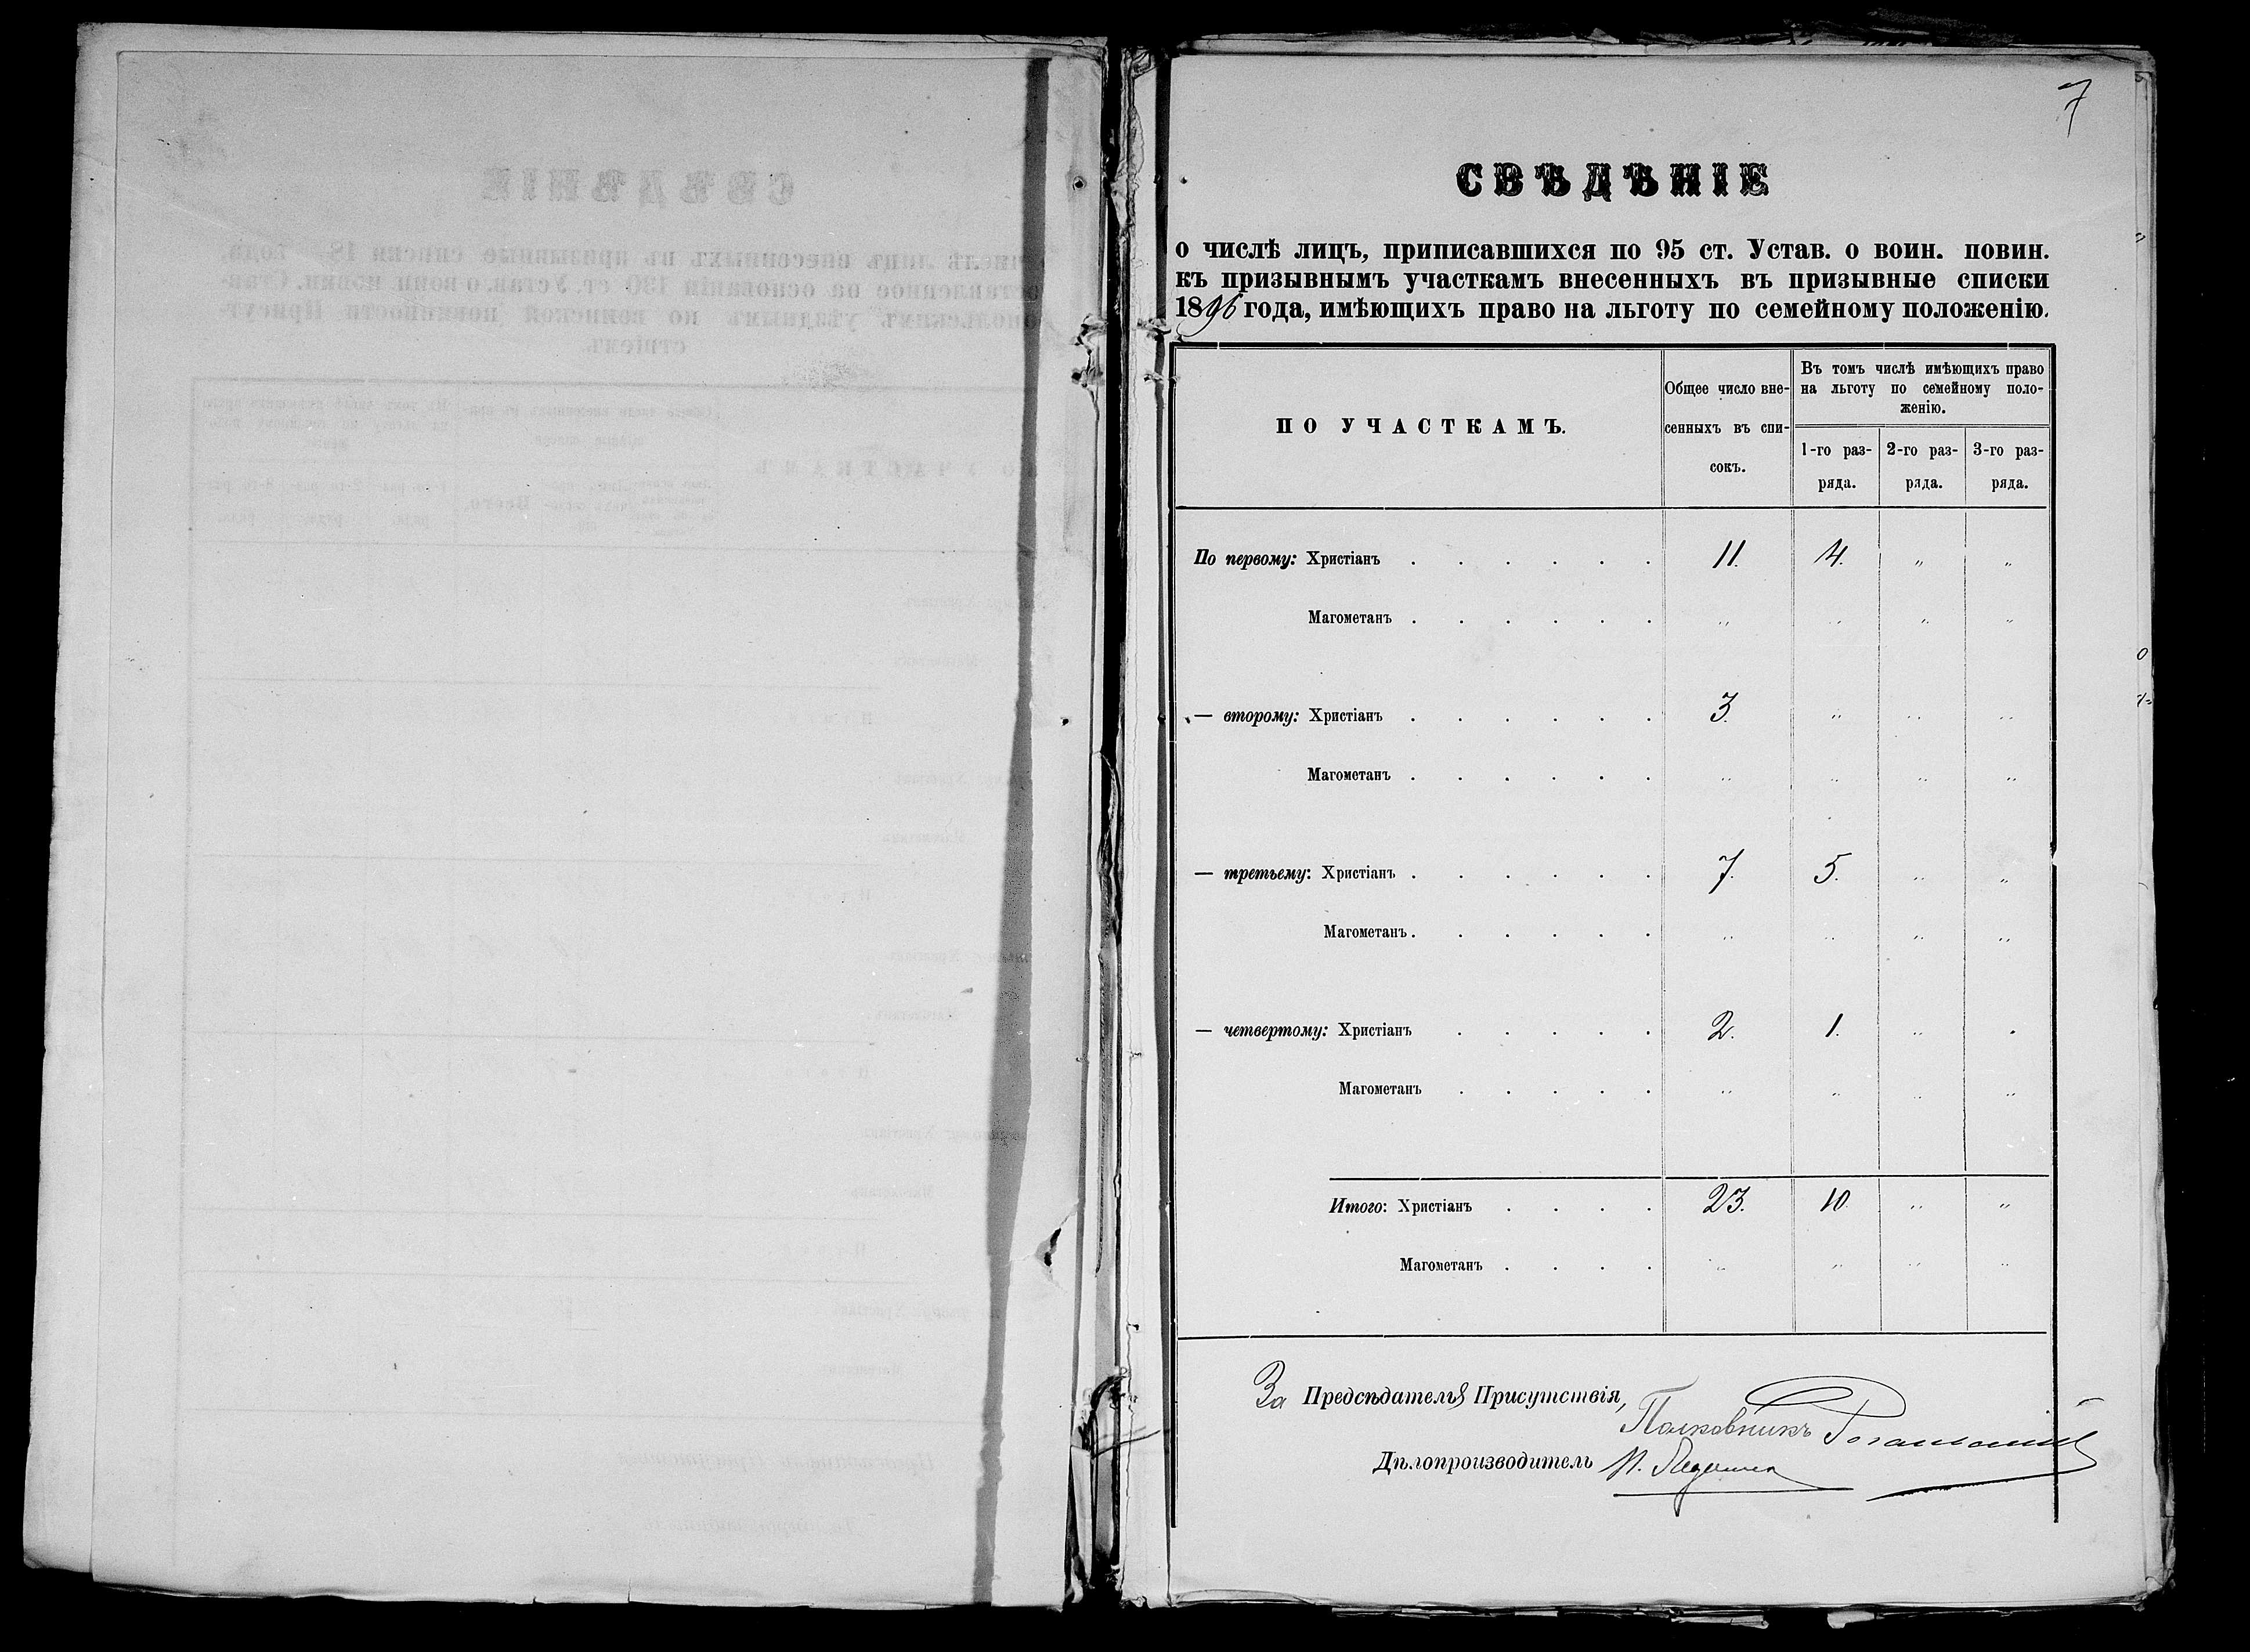 7
СВѢДѢНІЕ
о числѣ лицъ, приписавшихся по 95 ст. Устав. о воин. повин.
къ призывнымъ участкамъ внесенныхъ въ призывные списки
1896 года, имѣющихъ право на льготу по семейному положенію.
ПО УЧАСТКАМЪ.
Общее число вне-
сенныхъ въ спи-
сокъ.
Въ томъ числѣ имѣющихъ право
на льготу по семейному поло-
женію.
1-го раз-
ряда.
2-го раз-
ряда.
3-го раз-
ряда.
По первому: Христіанъ . . . . . . 11. 4. " "
Магометанъ . . . . . . " " " "
— второму: Христіанъ . . . . . . 3. " " "
Магометанъ . . . . . . " " " "
— третьему: Христіанъ . . . . . . 7. 5. " "
Магометанъ . . . . . . " " " "
— четвертому: Христіанъ . . . . . 2. 1. " "
Магометанъ . . . . . " " " "
Итого: Христіанъ . . . . 23. 10 " "
Магометанъ . . . . " " " "
За Предсѣдателя Присутствія,
Полковникъ
Дѣлопроизводитель